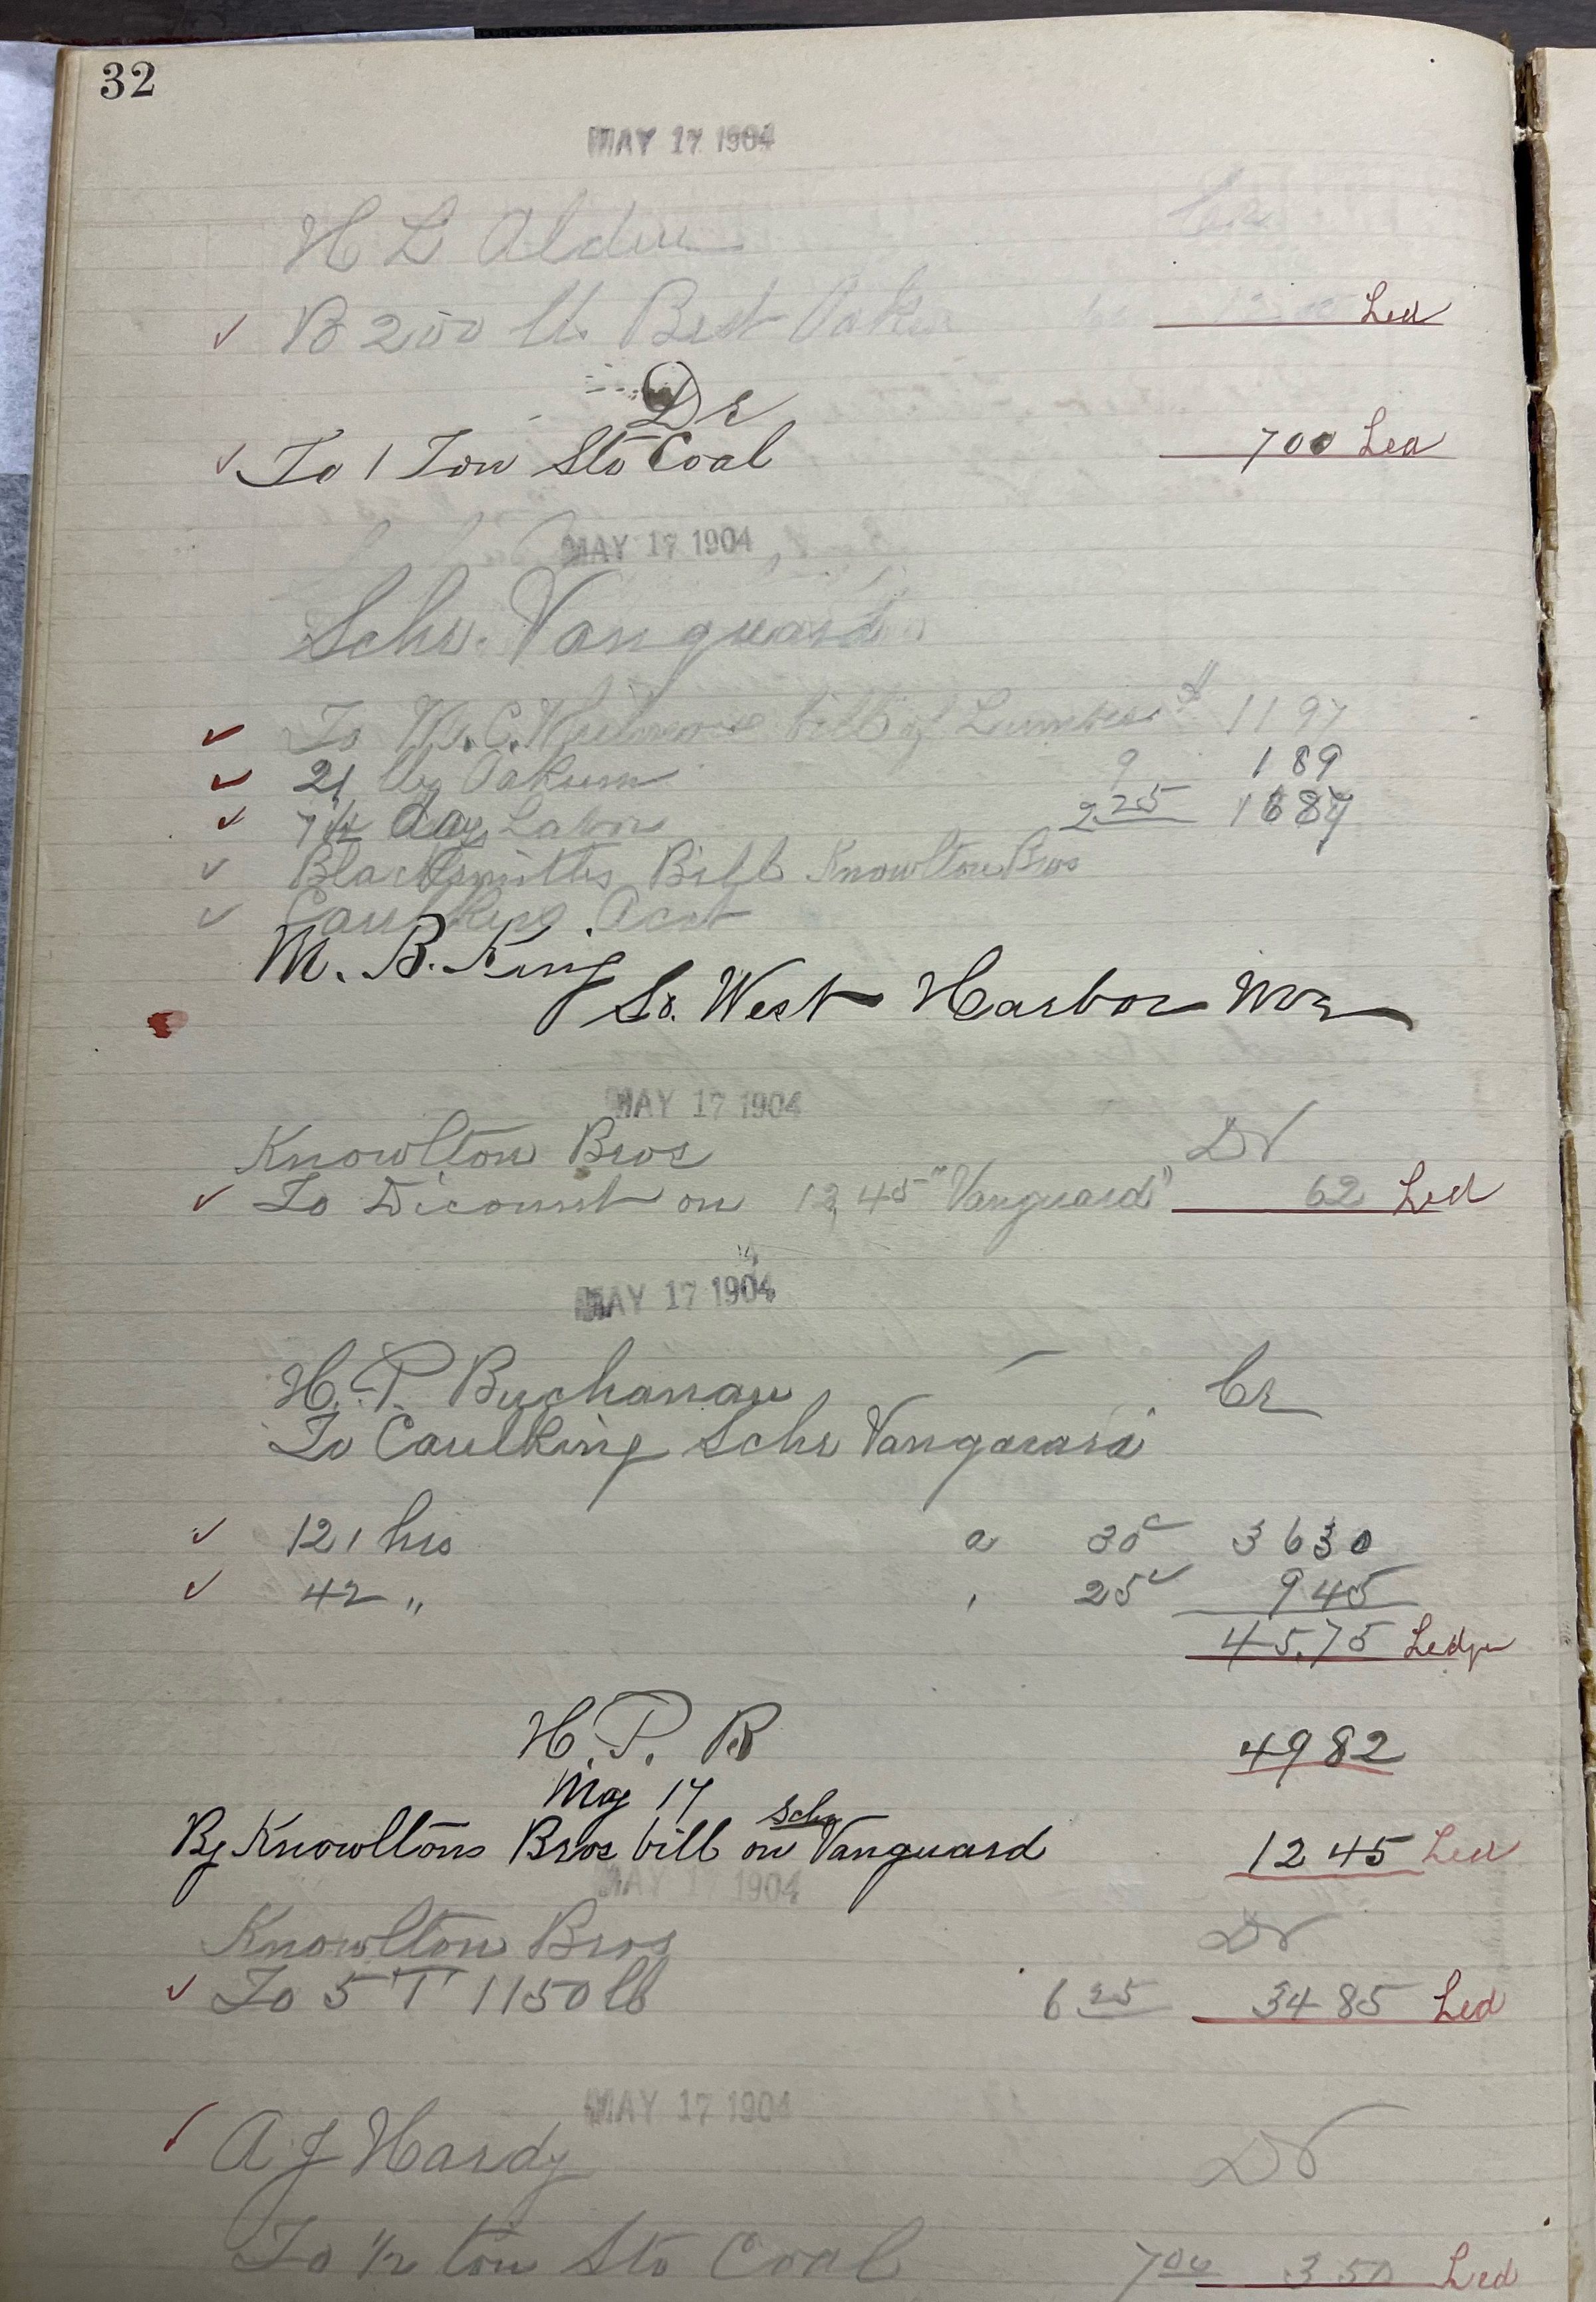 32
MAY 17 1904
H L Alden Cr
B 200 lb Best Oakum 6 12.00 Led
Dr
To 1 Ton Sto Coal 700 Led
MAY 17 1904
Schr. Vanguard
To bill of Lumber $ 11 97
21 lbs Oakum 9 1 89
7 1/2 days Labor 2.25 16 87
Blacksmiths Bill Knowlton Bros
Caulking Acct
M. B. King
So. West Harbor Me
MAY 17 1904
Knowlton Bros Dr
To Dicount on 12,45 "Vanguard" 62 Led
MAY 17 1904
H. P. Buchanan Cr
To Caulking Schr Vanguard
121 hrs a 30c 36 30
42 " " 25c 9 45
45.75 Ledger
H. P. B 49 82
May 17
By Knowltons Bros bill on Schr Vanguard 12 45 Led
MAY 17 1904
Knowlton Bros Dr
To 5 T 1150 lb 6 25 34 85 Led
MAY 17 1904
A J Hardy Dr
To 1/2 ton Sto Coal 7 00 3 50 Led